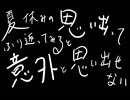 夏休みの思い出って
ふり返ってみると
意外と思い出せ
ない